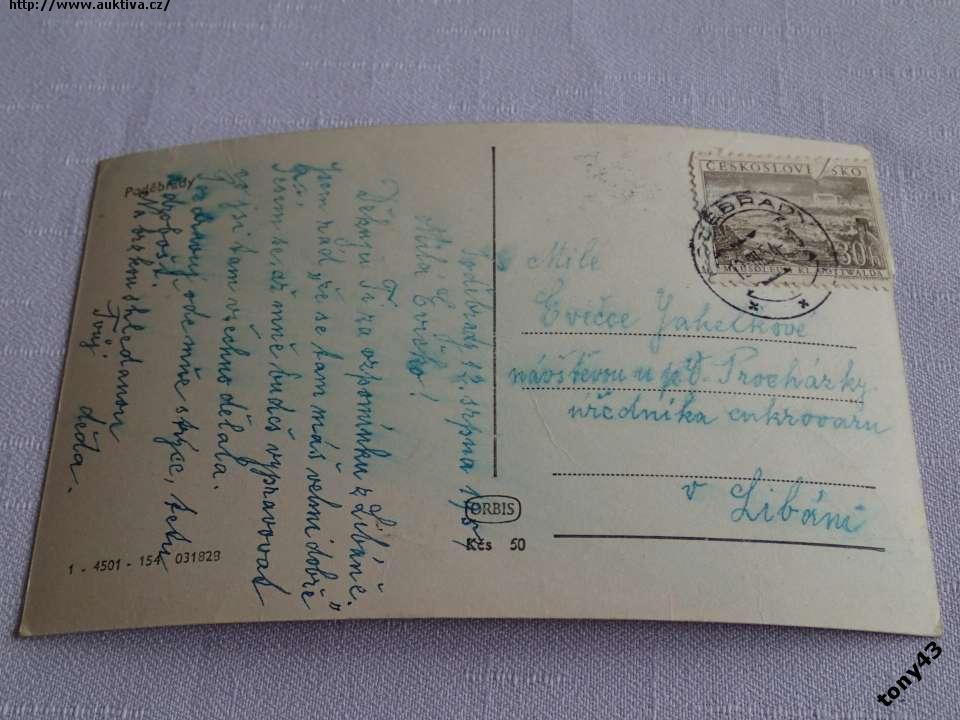 http://www.auktiva.cz/
Poděbrady
ČESKOSLOVENSKO
30h
MAUSOLEUM KL. GOTTWALDA
Poděbrady 12. srpna
Milá Evičko!
Děkuji Ti za vzpomínku z Libáně.
Jsem rád, že se tam máš velmi dobře
Těším se až mně budeš vypravovat
co jsi tam všechno dělala.
Pozdravuj ode mne strýce, tetu
Na brzkou shledanou
Tvůj
děda.
Milé
Evičce Jahelkové
návštěvou u p. Procházky
úředníka cukrovaru
v Libáni
ORBIS
Kčs 50
1 - 4501 - 154 031828
tony43